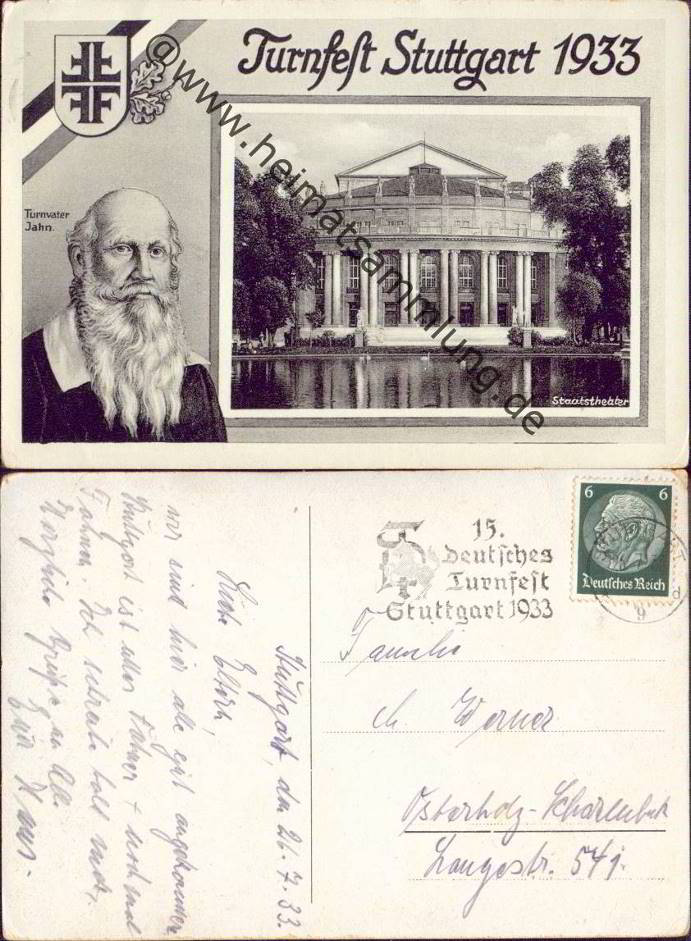 Turnfest Stuttgart 1933
Turnvater
Jahn.
Staatstheater
@www.heimatsammlung.de
15.
Deutsches
Turnfest
Stuttgart 1933
6 6
Deutsches Reich
Stuttgart, den 26.7.33.
Liebe Eltern,
wir sind hier alle gut angekommen
Stuttgart ist alles Fahnen + noch mal
Fahnen. Ich schreibe bald mehr,
Herzliche Grüße an All.
Euer
Familie
Werner
Osterholz-Scharmbeck
Langestr.